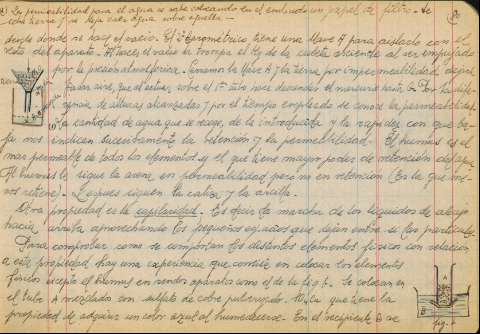 La permeabilidad para el agua se sabe colocando en el embudo un papel de filtro. Se
pone tierra y se deja caer agua sobre aquella —
desde donde se hace el vacio. El 1er barométrico tiene una llave A para aislarlo con el
resto del aparato. Al hacer el vacio la trompa el Hg de la cubeta asciende al ser empujado
por la presion atmosférica. Cerramos la llave A y la tierra por impermeabilidad dejar
pasar aire, que al actuar sobre el 1er tubo hace descender el mercurio hasta Por la dife-
rencia de alturas alcanzadas y por el tiempo empleado se conoce la permeabilidad.
La cantidad de agua que se recoge, de la introducida y la rapidez con que ba-
ja nos indican sucesivamente la retención y la permeabilidad. El humus es el
mas permeable de todos los elementos y el que tiene mayor poder de retención de agua.
Al humus le sigue la arena en permeabilidad pero no en retención (es la que me-
nos retiene). Despues siguen la caliza y la arcilla.
Otra propiedad es la capilaridad. Es decir la marcha de los liquidos de abajo
hacia arriba aprovechando los pequeños espacios que dejan entre si las particulas.
Para comprobar como se comportan los distintos elementos fisicos con relación
a esta propiedad, hay una experiencia que consiste en colocar los elementos
fisicos excepto el humus en sendos aparatos como el de la fig. 6. Se colocan en
el tubo A mezclados con sulfato de cobre pulverizado. Este que tiene la
propiedad de adquirir un color azul al humedecerse. En el recipiente B se
A
B
fig. 6